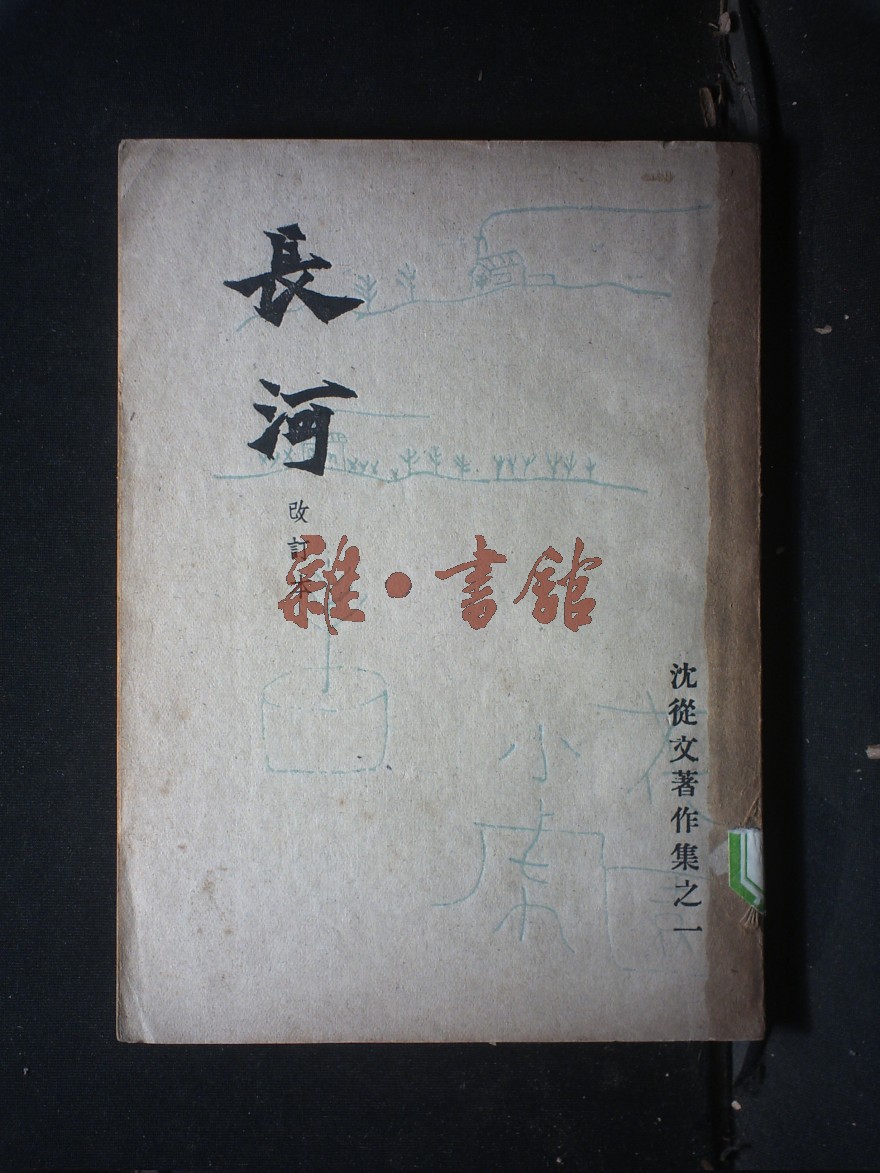 長河
改訂本
雜·書館
沈從文著作集之一
小